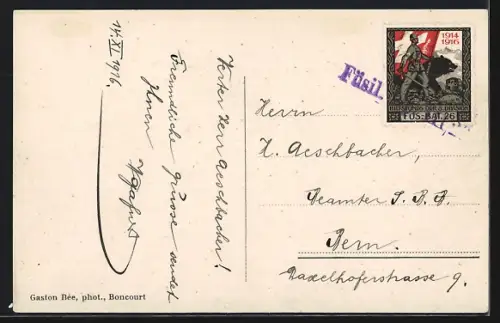 14. XI 1916.
Werter Herr Aeschbacher!
Freundliche Grüsse sendet
Ihnen
Gaston Bée, phot., Boncourt
1914
1916
FÜS. BAT. 26
Füsil.
Herrn
H. Aeschbacher,
Beamter S. B. B.
Bern.
Daxelhoferstrasse 9.